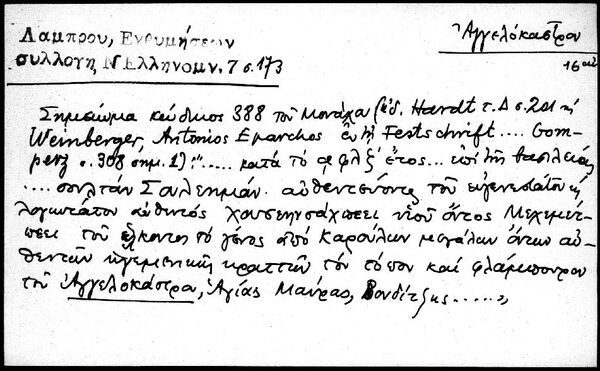 Λαμπρου, Ενθυμήσεων
συλλογη Ν Ελληνομν. 7 σ. 173
Ἀγγελόκαστρον
16 αἰ
Σημείωμα κώδικος 388 τοῦ Μονάχου (ἔκδ. Hardt τ. Δ σ. 201 καὶ
Weinberger, Antonios Eparchos ἐν τῇ Festschrift .... Gom-
perz σ. 308 σημ. 1): "..... κατὰ τὸ αφλξ' ἔτος... ἐπὶ τῆς βασιλείας
.... σουλτὰν Σουλεημάν. αὐθεντεύοντος τοῦ εὐγενεστάτου καὶ
λογιωτάτου αὐθεντὸς υἱοῦ ὄντος Μεχεμέτ-
πεει τοῦ ἕλκοντος τὸ γένος ἀπὸ Καρούλων μεγάλων ὄντων αὐ-
θεντῶν τὸν τόπον καὶ φλάμπουρον
τοῦ Ἀγγελοκάστρου, Ἁγίας Μαύρας, Βονδίτζης ....."